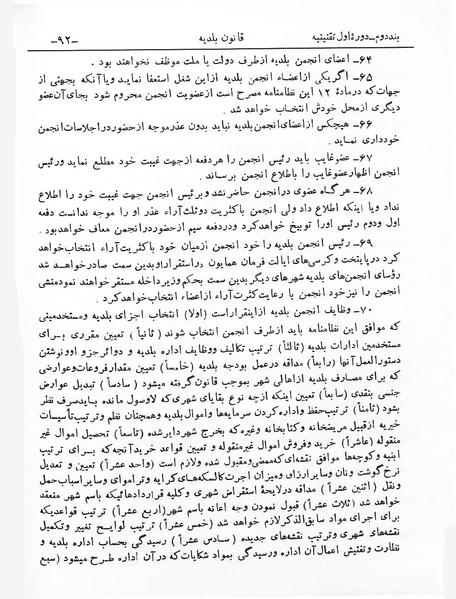 بند دوم ـ دورهٔ اول تقنینیه قانون بلدیه ـ۹۲ـ
۶۴ـ اعضای انجمن بلدیه ازطرف دولت یا ملت موظف نخواهند بود .
۶۵ـ اگر یکی ازاعضاء انجمن بلدیه ازاین شغل استعفا نماید ویا آنکه بجهتی از
جهات که درمادهٔ ۱۲ این نظامنامه مصرح است ازعضویت انجمن محروم شود بجای آن عضو
دیگری ازمحل خودش انتخاب خواهد شد .
۶۶ـ هیچکس ازاعضای انجمن بلدیه نباید بدون عذرموجه ازحضوردراجلاسات انجمن
خودداری نماید .
۶۷ـ عضوغایب باید رئیس انجمن را هردفعه ازجهت غیبت خود مطلع نماید ورئیس
انجمن اظهارعضوغایب را باطلاع انجمن برساند .
۶۸ـ هرگاه عضوی درانجمن حاضرنشد وبرئیس انجمن جهت غیبت خود را اطلاع
نداد ویا اینکه اطلاع داد ولی انجمن باکثریت دوثلث آراء عذر او را موجه ندانست دفعه
اول ودوم رئیس اورا توبیخ خواهدکرد ودردفعه سیم ازحضوردرانجمن معاف خواهدبود .
۶۹ـ رئیس انجمن بلدیه را خود انجمن ازمیان خود باکثریت آراء انتخاب خواهد
کرد درپایتخت وکرسی‌های ایالت فرمان همایون دراستقراراوبدین سمت صادرخواهد شد
رؤسای انجمن‌های بلدیه شهرهای دیگربدین سمت بحکم وزیرداخله مستقر خواهند نموده منشی
انجمن را نیزخود انجمن با رعایت کثرت آراء ازاعضاء انتخاب خواهدکرد .
۷۰ـ وظایف انجمن بلدیه ازاینقراراست (اولا) انتخاب اجزای بلدیه ومستخدمینی
که موافق این نظامنامه باید ازطرف انجمن انتخاب شوند (ثانیاً) تعیین مقرری برای
مستخدمین ادارات بلدیه (ثالثاً) ترتیب تکالیف ووظایف اداره بلدیه و دوائرجزو اوونوشتن
دستورالعمل آنها (رابعاً) مداقه درعمل بودجه بلدیه (خامساً) تعیین مقدارفروعات وعوارضی
که برای مصارف بلدیه ازاهالی شهر بموجب قانون گرفته میشود (سادساً) تبدیل عوارض
جنسی بنقدی (سابعاً) تعیین اینکه ازچه نوع بقایای شهری که لاوصول مانده باید صرف نظر
بشود (ثامناً) ترتیب حفظ واداره کردن سرمایه‌ها واموال بلدیه وهمچنان نظم وترتیب تأسیسات
خیریه ازقبیل مریضخانه و کتابخانه وغیره که بخرج شهر دایرشده (تاسعاً) تحصیل اموال غیر
منقوله (عاشراً) خرید وفروش اموال غیرمنقوله و تعیین قواعد خرید آنچه که برای ترتیب
ابنیه وکوچه‌ها موافق نقشه‌ای که ممضی ومقبول شده ولازم است (واحد عشراً) تعیین و تعدیل
نرخ گوشت ونان وسایرارزاق ومیزان اجرت کالسکه‌های کرایه وتراموای وسایراسباب حمل
ونقل (اثنین عشراً) مداقه درلایحهٔ استقراض شهری وکلیه قراردادهائیکه باسم شهر منعقد
خواهد شد (ثلاث عشراً) قبول نمودن وجه اعانه باسم شهر (اربع عشراً) ترتیب قواعدیکه
برای اجرای مواد سابق الذکرلازم خواهد شد (خمس عشراً) ترتیب لوایح تغییر وتکمیل
نقشه‌های شهری وترتیب نقشه‌های جدیده (سادس عشراً) رسیدگی بحساب اداره بلدیه و
نظارت وتفتیش اعمال آن اداره ورسیدگی بمواد شکایات که درآن اداره طرح میشود (سبع